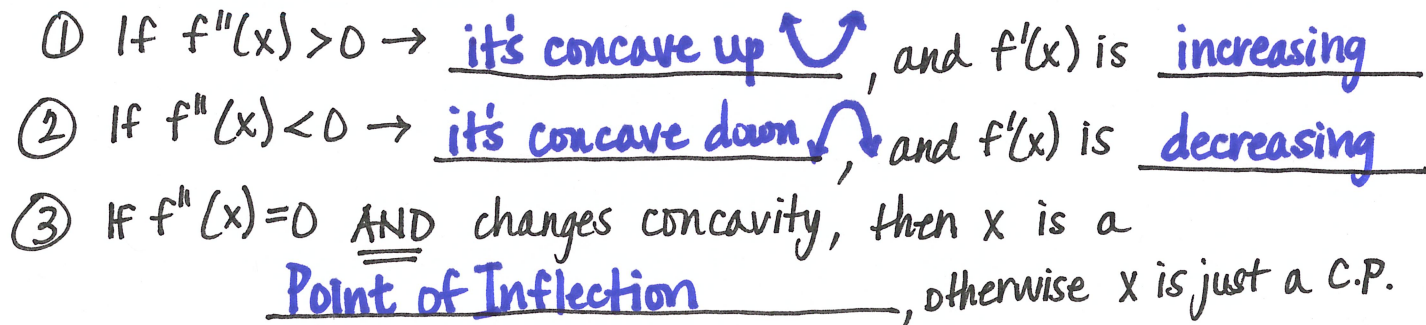 ① If f''(x) > 0 → it's concave up, and f'(x) is increasing
② If f''(x) < 0 → it's concave down, and f'(x) is decreasing
③ If f''(x) = 0 AND changes concavity, then x is a
Point of Inflection, otherwise x is just a C.P.